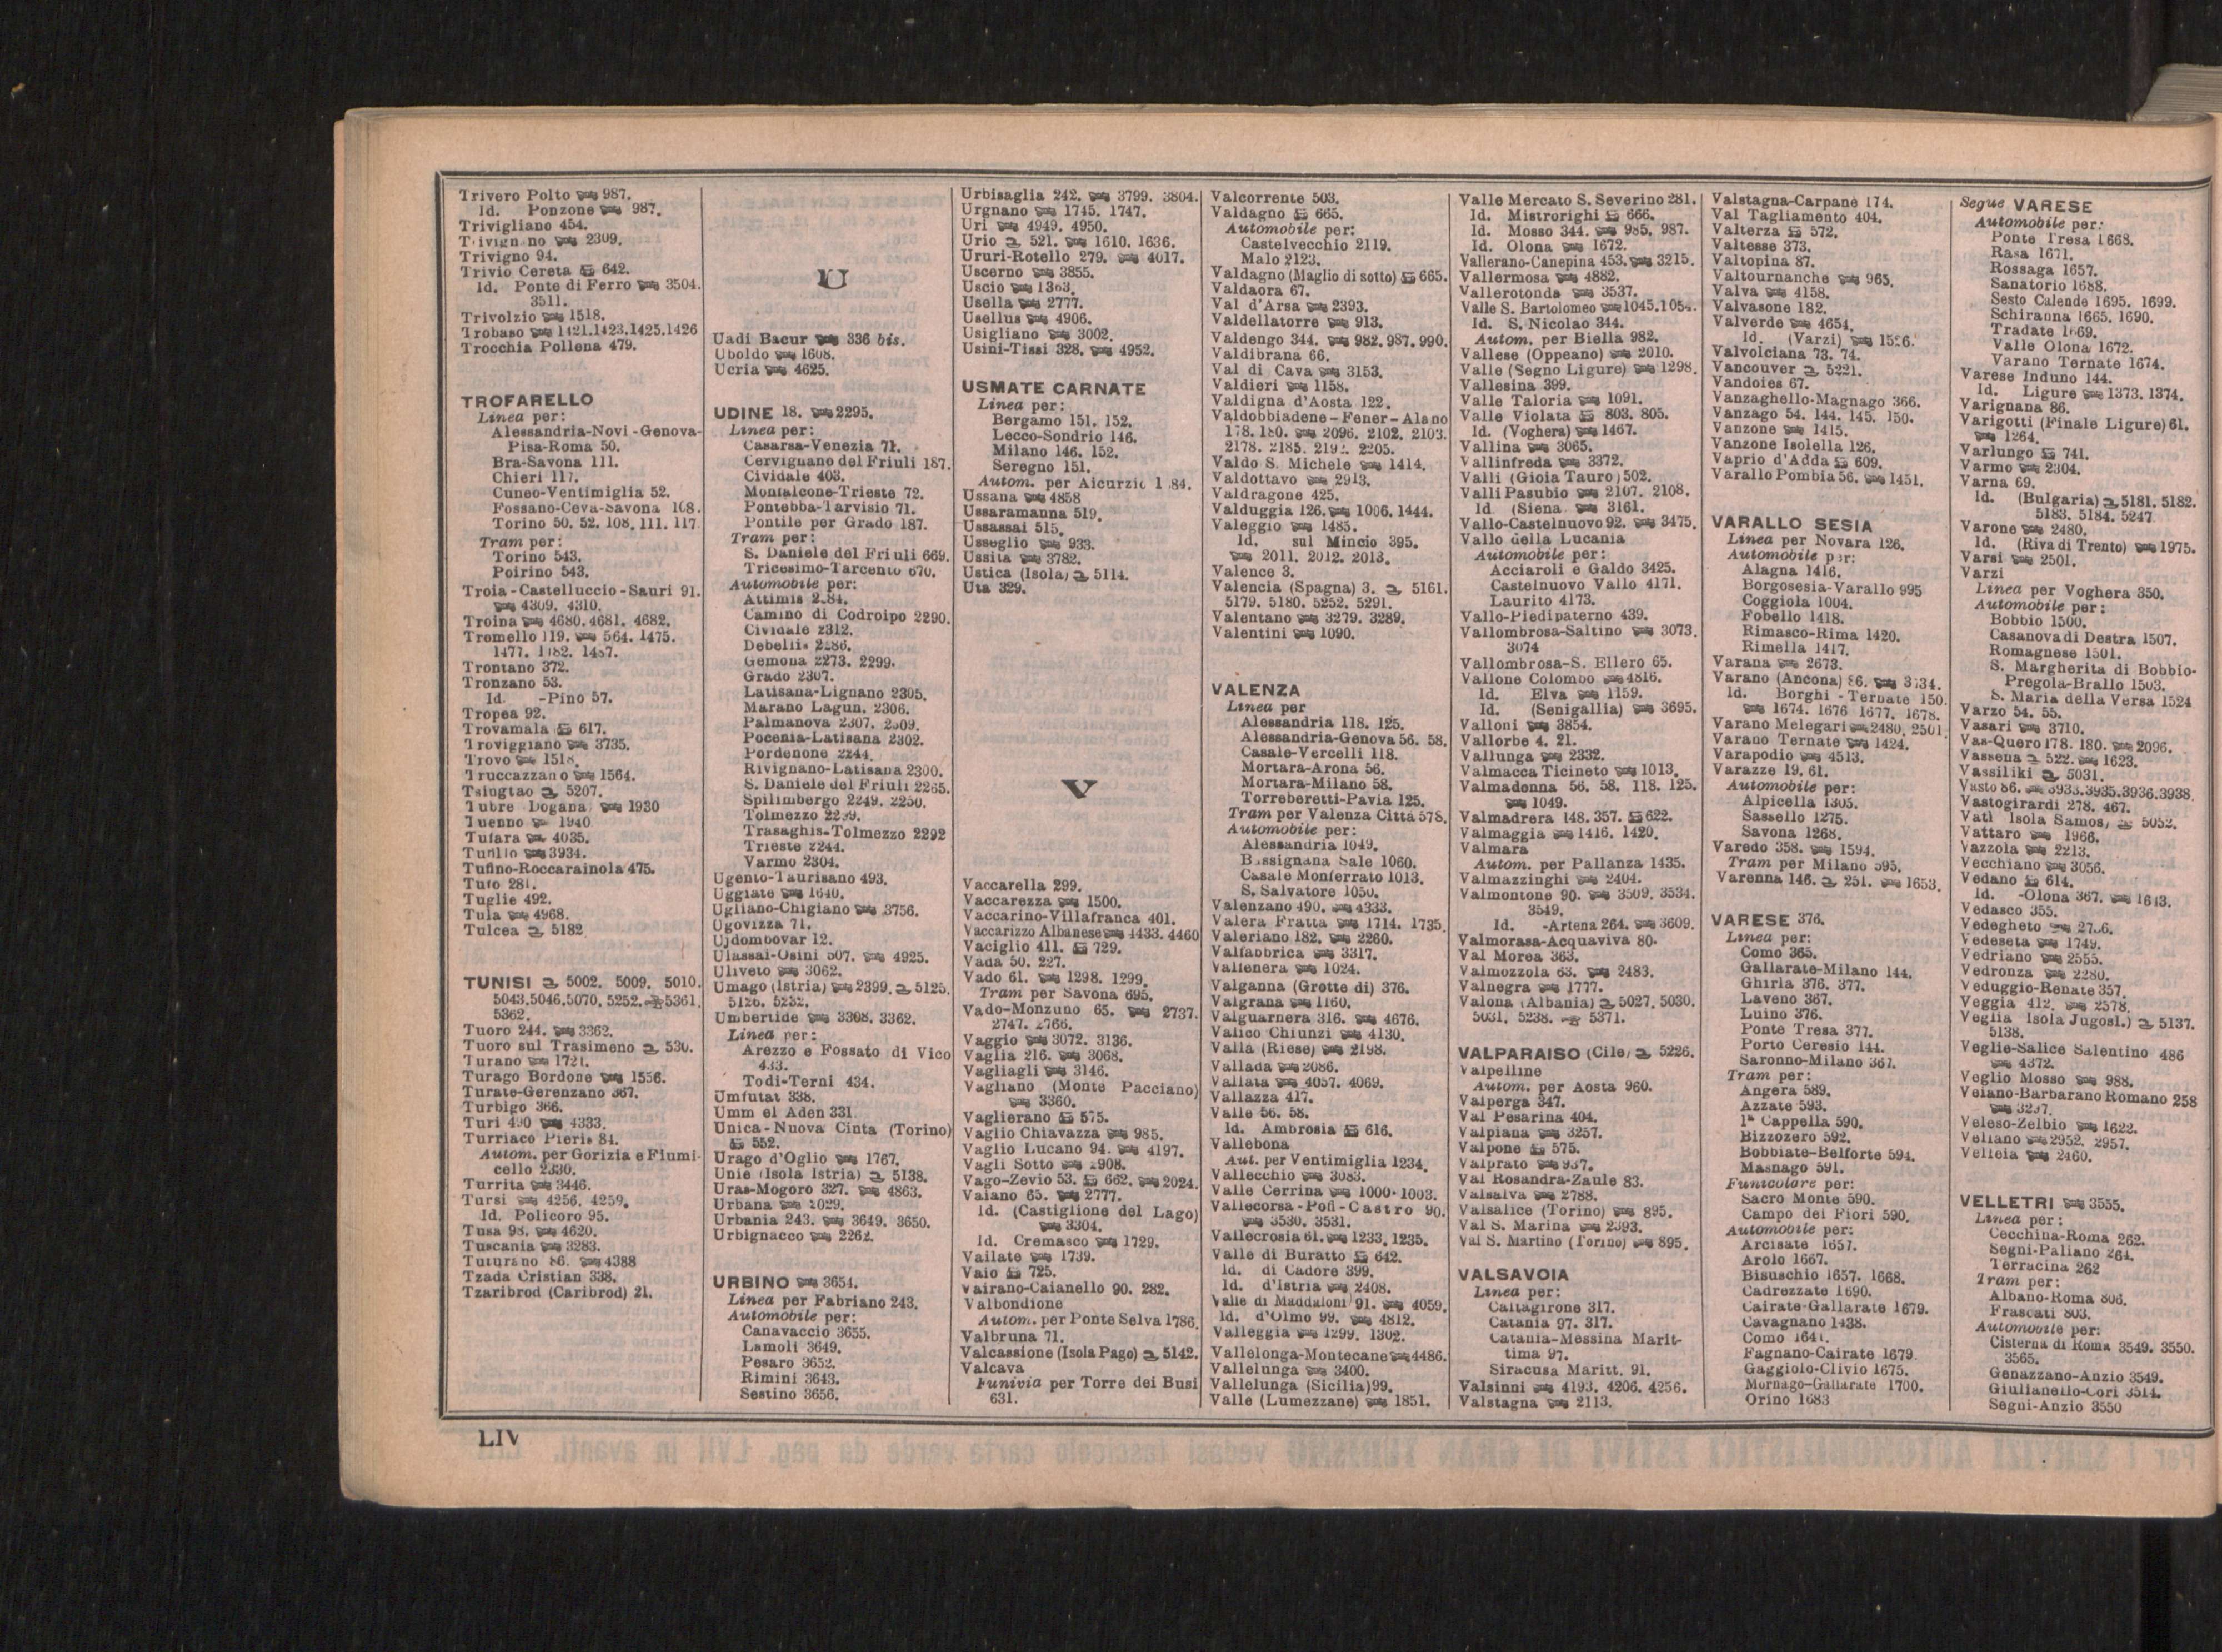 Trivero Polto 987.
Id. Ponzone 987.
Trivigliano 454.
2309.
Trivigno 94.
Trivio Cereta 642.
Id. Ponte di Ferro 3504.
3511.
Trivolzio 1518.
Trobaso 1421.1423.1425.1426
Trocchia Pollena 479.
TROFARELLO
Linea per:
Alessandria-Novi-Genova-
Pisa-Roma 50.
Bra-Savona 111.
Chieri 117.
Cuneo-Ventimiglia 52.
Fossano-Ceva-Savona 108.
Torino 50. 52. 108. 111. 117
Tram per:
Torino 543.
Poirino 543.
Troia-Castelluccio-Sauri 91.
4309. 4310.
Troina 4680. 4681. 4682.
Tromello 119. 564. 1475.
1477. 1482. 1487.
Trontano 372.
Tronzano 53.
Id. -Pino 57.
Tropea 92.
Trovamala 617.
Troviggiano 3735.
Trovo 1518.
Truccazzano 1564.
Tsingtao 5207.
Tubre Dogana 1930
Tuenno 1940
Tufara 4035.
Tufillo 3934.
Tufino-Roccarainola 475.
Tufo 281.
Tuglie 492.
Tula 4968.
Tulcea 5182
TUNISI 5002. 5009. 5010.
5043.5046.5070. 5252. 5361.
5362.
Tuoro 244. 3362.
Tuoro sul Trasimeno 530.
Turano 1721.
Turago Bordone 1556.
Turate-Gerenzano 367.
Turbigo 366.
Turi 490 4333.
Turriaco Pieris 84.
Autom. per Gorizia e Fiumi-
cello 2330.
Turrita 3446.
Tursi 4256. 4259.
Id. Policoro 95.
Tusa 98. 4620.
Tuscania 3283.
Tuturano 86. 4388
Tzada Cristian 338.
Tzaribrod (Caribrod) 21.
U
Uadi Bacur 336 bis.
Uboldo 1608.
Ucria 4625.
UDINE 18. 2295.
Linea per:
Casarsa-Venezia 71.
Cervignano del Friuli 187.
Cividale 403.
Monfalcone-Trieste 72.
Pontebba-Tarvisio 71.
Pontile per Grado 187.
Tram per:
S. Daniele del Friuli 669.
Tricesimo-Tarcento 670.
Automobile per:
Attimis 2284.
Camino di Codroipo 2290.
Cividale 2312.
Debellis 2286.
Gemona 2273. 2299.
Grado 2307.
Latisana-Lignano 2305.
Marano Lagun. 2306.
Palmanova 2307. 2309.
Pocenia-Latisana 2302.
Pordenone 2244.
Rivignano-Latisana 2300.
S. Daniele del Friuli 2265.
Spilimbergo 2249. 2250.
Tolmezzo
Trasaghis-Tolmezzo 2292
Trieste 2244.
Varmo 2304.
Ugento-Taurisano 493.
Uggiate 1640.
Ugliano-Chigiano 3756.
Ugovizza 71.
Ujdombovar 12.
Ulassai-Osini 507. 4925.
Uliveto 3062.
Umago (Istria) 2399. 5125.
5126. 5232.
Umbertide 3308. 3362.
Linea per:
Arezzo e Fossato di Vico
433.
Todi-Terni 434.
Umfutat 338.
Umm el Aden 331
Unica-Nuova Cinta (Torino)
552.
Urago d'Oglio 1767.
Unie (Isola Istria) 5138.
Uras-Mogoro 327. 4863.
Urbana 2029.
Urbania 243. 3649. 3650.
Urbignacco 2262.
URBINO 3654.
Linea per Fabriano 243.
Automobile per:
Canavaccio 3655.
Lamoli 3649.
Pesaro 3652.
Rimini 3643.
Sestino 3656.
Urbisaglia 242. 3799. 3804.
Urgnano 1745. 1747.
Uri 4949. 4950.
Urio 521. 1610. 1636.
Ururi-Rotello 279. 4017.
Uscerno 3855.
Uscio 1363.
Usella 2777.
Usellus 4906.
Usigliano 3002.
Usini-Tissi 328. 4952.
USMATE CARNATE
Linea per:
Bergamo 151. 152.
Lecco-Sondrio 146.
Milano 146. 152.
Seregno 151.
Autom. per Aicurzio
Ussana 4858
Ussaramanna 519.
Ussassai 515.
Usseglio 933.
Ussita 3782.
Ustica (Isola) 5114.
Uta 329.
V
Vaccarella 299.
Vaccarezza 1500.
Vaccarino-Villafranca 401.
Vaccarizzo Albanese 4433. 4460
Vaciglio 411. 729.
Vada 50. 227.
Vado 61. 1298. 1299.
Tram per Savona 695.
Vado-Monzuno 65. 2737.
2747. 2766.
Vaggio 3072. 3136.
Vaglia 216. 3068.
Vagliagli 3146.
Vagliano (Monte Pacciano)
3360.
Vaglierano 575.
Vaglio Chiavazza 985.
Vaglio Lucano 94. 4197.
Vagli Sotto 2908.
Vago-Zevio 53. 662. 2024.
Vaiano 65. 2777.
Id. (Castiglione del Lago)
3304.
Id. Cremasco 1729.
Vailate 1739.
Vaio 725.
Vairano-Caianello 90. 282.
Valbondione
Autom. per Ponte Selva 1786.
Valbruna 71.
Valcassione (Isola Pago) 5142.
Valcava
Funivia per Torre dei Busi
631.
Valcorrente 503.
Valdagno 665.
Automobile per:
Castelvecchio 2119.
Malo 2123.
Valdagno (Maglio di sotto) 665.
Valdaora 67.
Val d'Arsa 2393.
Valdellatorre 913.
Valdengo 344. 982. 987. 990.
Valdibrana 66.
Val di Cava 3153.
Valdieri 1158.
Valdigna d'Aosta 122.
Valdobbiadene-Fener-Alano
178. 180. 2096. 2102. 2103.
2178. 2185. 2192. 2205.
Valdo S. Michele 1414.
Valdottavo 2913.
Valdragone 425.
Valduggia 126. 1006. 1444.
Valeggio 1485.
Id. sul Mincio 395.
2011. 2012. 2013.
Valence 3.
Valencia (Spagna) 3. 5161.
5179. 5180. 5252. 5291.
Valentano 3279. 3289.
Valentini 1090.
VALENZA
Linea per
Alessandria 118. 125.
Alessandria-Genova 56. 58.
Casale-Vercelli 118.
Mortara-Arona 56.
Mortara-Milano 58.
Torreberetti-Pavia 125.
Tram per Valenza Città 578.
Automobile per:
Alessandria 1049.
Bassignana Sale 1060.
Casale Monferrato 1013.
S. Salvatore 1050.
Valenzano 490. 4333.
Valera Fratta 1714. 1735.
Valeriano 182. 2260.
Valfabbrica 3317.
Valfenera 1024.
Valganna (Grotte di) 376.
Valgrana 1160.
Valguarnera 316. 4676.
Valico Chiunzi 4130.
Vallà (Riese) 2198.
Vallada 2086.
Vallata 4057. 4069.
Vallazza 417.
Valle 56. 58.
Id. Ambrosia 616.
Vallebona
Aut. per Ventimiglia 1234.
Vallecchio 3083.
Valle Cerrina 1000-1003.
Vallecorsa-Pofi-Castro 90.
3530. 3531.
Vallecrosia 61. 1233. 1235.
Valle di Buratto 642.
Id. di Cadore 399.
Id. d'Istria 2408.
Valle di Maddaloni 91. 4059.
Id. d'Olmo 99. 4812.
Valleggia 1299. 1302.
Vallelonga-Montecane 4486.
Vallelunga 3400.
Vallelunga (Sicilia) 99.
Valle (Lumezzane) 1851.
Valle Mercato S. Severino 281.
Id. Mistrorighi 666.
Id. Mosso 344. 985. 987.
Id. Olona 1672.
Vallerano-Canepina 453. 3215.
Vallermosa 4882.
Vallerotonda 3537.
Valle S. Bartolomeo 1045.1054.
Id. S. Nicolao 344.
Autom. per Biella 982.
Vallese (Oppeano) 2010.
Valle (Segno Ligure) 1298.
Vallesina 399.
Valle Taloria 1091.
Valle Violata 803. 805.
Id. (Voghera) 1467.
Vallina 3065.
Vallinfreda 3372.
Valli (Gioia Tauro) 502.
Valli Pasubio 2107. 2108.
Id (Siena 3161.
Vallo-Castelnuovo 92. 3475.
Vallo della Lucania
Automobile per:
Acciaroli e Galdo 3425.
Castelnuovo Vallo 4171.
Laurito 4173.
Vallo-Piedipaterno 439.
Vallombrosa-Saltino 3073.
3074
Vallombrosa-S. Ellero 65.
Vallone Colombo 4816.
Id. Elva 1159.
Id. (Senigallia) 3695.
Valloni 3854.
Vallorbe 4. 21.
Vallunga 2332.
Valmacca Ticineto 1013.
Valmadonna 56. 58. 118. 125.
1049.
Valmadrera 148. 357. 622.
Valmaggia 1416. 1420.
Valmara
Autom. per Pallanza 1435.
Valmazzinghi 2404.
Valmontone 90. 3509. 3534.
3549.
Id. -Artena 264. 3609.
Valmorasa-Acquaviva 80.
Val Morea 363.
Valmozzola 63. 2483.
Valnegra 1777.
Valona (Albania) 5027. 5030.
5031. 5238. 5371.
VALPARAISO (Cile) 5226.
Valpelline
Autom. per Aosta 960.
Valperga 347.
Val Pesarina 404.
Valpiana 3257.
Valpone 575.
Valprato 937.
Val Rosandra-Zaule 83.
Valsalva 2788.
Valsalice (Torino) 895.
Val S. Marina 2393.
Val S. Martino (Torino) 895.
VALSAVOIA
Linea per:
Caltagirone 317.
Catania 97. 317.
Catania-Messina Marit-
tima 97.
Siracusa Maritt. 91.
Valsinni 4193. 4206. 4256.
Valstagna 2113.
Valstagna-Carpane 174.
Val Tagliamento 404.
Valterza 572.
Valtesse 373.
Valtopina 87.
Valtournanche 965.
Valva 4158.
Valvasone 182.
Valverde 4654.
Id. (Varzi) 1526.
Valvolciana 73. 74.
Vancouver 5221.
Vandoies 67.
Vanzaghello-Magnago 366.
Vanzago 54. 144. 145. 150.
Vanzone 1415.
Vanzone Isolella 126.
Vaprio d'Adda 609.
Varallo Pombia 56. 1451.
VARALLO SESIA
Linea per Novara 126.
Automobile per:
Alagna 1416.
Borgosesia-Varallo 995
Coggiola 1004.
Fobello 1418.
Rimasco-Rima 1420.
Rimella 1417.
Varana 2673.
Varano (Ancona) 86. 3734.
Id. Borghi-Ternate 150.
1674. 1676 1677. 1678.
Varano Melegari 2480. 2501
Varano Ternate 1424.
Varapodio 4513.
Varazze 19. 61.
Automobile per:
Alpicella 1305.
Sassello 1275.
Savona 1268.
Varedo 358. 1594.
Tram per Milano 595.
Varenna 146. 251. 1653.
VARESE 376.
Linea per:
Como 365.
Gallarate-Milano 144.
Ghirla 376. 377.
Laveno 367.
Luino 376.
Ponte Tresa 377.
Porto Ceresio 144.
Saronno-Milano 367.
Tram per:
Angera 589.
Azzate 593.
1ª Cappella 590.
Bizzozero 592.
Bobbiate-Belforte 594.
Masnago 591.
Funicolare per:
Sacro Monte 590.
Campo dei Fiori 590.
Automobile per:
Arcisate 1657.
Arolo 1667.
Bisuschio 1657. 1668.
Cadrezzate 1690.
Cairate-Gallarate 1679.
Cavagnano 1438.
Como 1641.
Fagnano-Cairate 1679
Gaggiolo-Clivio 1675.
Mornago-Gallarate 1700.
Orino 1683
Segue VARESE
Automobile per:
Ponte Tresa 1668.
Rasa 1671.
Rossaga 1657.
Sanatorio 1688.
Sesto Calende 1695. 1699.
Schiranna 1665. 1690.
Tradate 1669.
Valle Olona 1672.
Varano Ternate 1674.
Varese Induno 144.
Id. Ligure 1373. 1374.
Varignana 86.
Varigotti (Finale Ligure) 61.
1264.
Varlungo 741.
Varmo 2304.
Varna 69.
Id. (Bulgaria) 5181. 5182.
5183. 5184. 5247
Varone 2480.
Id. (Riva di Trento) 1975.
Varsi 2501.
Varzi
Linea per Voghera 350.
Automobile per:
Bobbio 1500.
Casanova di Destra 1507.
Romagnese 1501.
S. Margherita di Bobbio-
Pregola-Brallo 1503.
S. Maria della Versa 1524
Varzo 54. 55.
Vasari 3710.
Vas-Quero 178. 180. 2096.
Vassena 522. 1623.
Vassiliki 5031.
Vasto 86. 3933.3935.3936.3938.
Vastogirardi 278. 467.
Vati Isola Samos) 5052.
Vattaro 1966.
Vazzola 2213.
Vecchiano 3056.
Vedano 614.
Id. -Olona 367. 1643.
Vedasco 355.
Vedegheto
Vedeseta 1749.
Vedriano 2555.
Vedronza 2280.
Veduggio-Renate 357.
Veggia 412. 2578.
Veglia Isola Jugosl.) 5137.
5138.
Veglie-Salice Salentino 486
4372.
Veglio Mosso 988.
Veiano-Barbarano Romano 258
3297.
Veleso-Zelbio 1622.
Veliano 2952. 2957.
Velleia 2460.
VELLETRI 3555.
Linea per:
Cecchina-Roma 262.
Segni-Paliano 264.
Terracina 262
Tram per:
Albano-Roma 806.
Frascati 803.
Automobile per:
Cisterna di Roma 3549. 3550.
3565.
Genazzano-Anzio 3549.
Giulianello-Cori 3514.
Segni-Anzio 3550
LIV